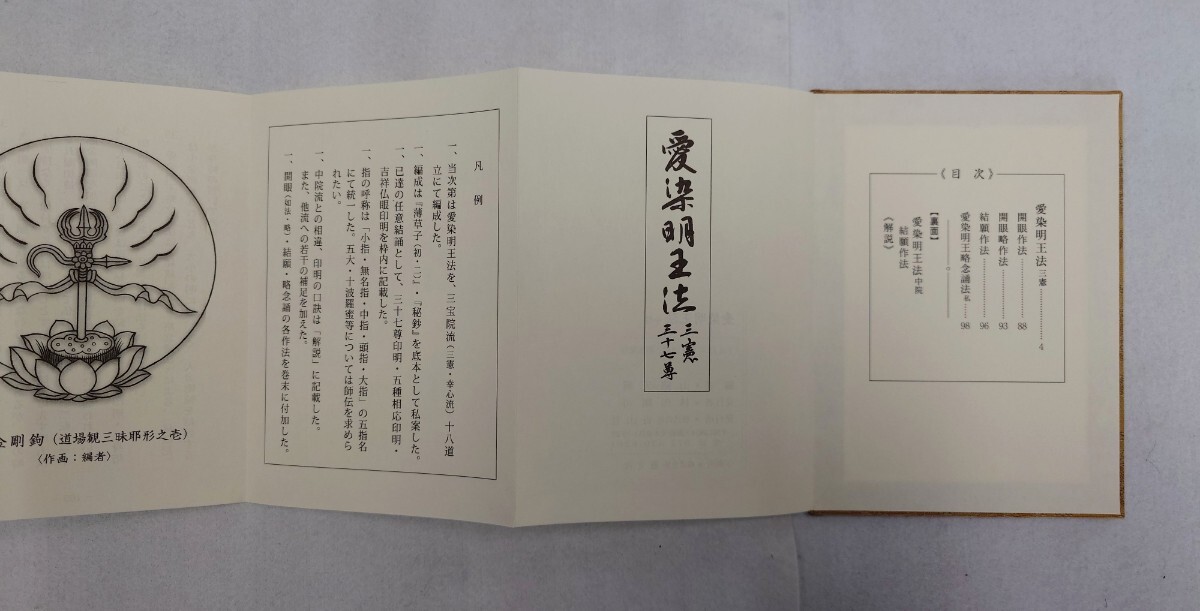 《目次》
愛染明王法 三憲 4
開眼作法 88
開眼略作法 93
結願作法 96
愛染明王略念誦法 私 98
【裏面】
愛染明王法 中院
結願作法
《解説》
愛染明王法 三憲
三十七尊
凡例
一、当次第は愛染明王法を、三宝院流(三憲・幸心流)十八道
立にて編成した。
一、編成は『薄草子(初・二)』・『秘鈔』を底本として私案した。
一、已達の任意結誦として、三十七尊印明・五種相応印明・
吉祥仏眼印明を枠内に記載した。
一、指の呼称は「小指・無名指・中指・頭指・大指」の五指名
にて統一した。五大・十波羅蜜等については師伝を求めら
れたい。
一、中院流との相違、印明の口訣は「解説」に記載した。
また、他流への若干の補足を加えた。
一、開眼(如法・略)・結願・略念誦の各作法を巻末に付加した。
金剛鉤(道場観三昧耶形之壱)
〈作画:編者〉